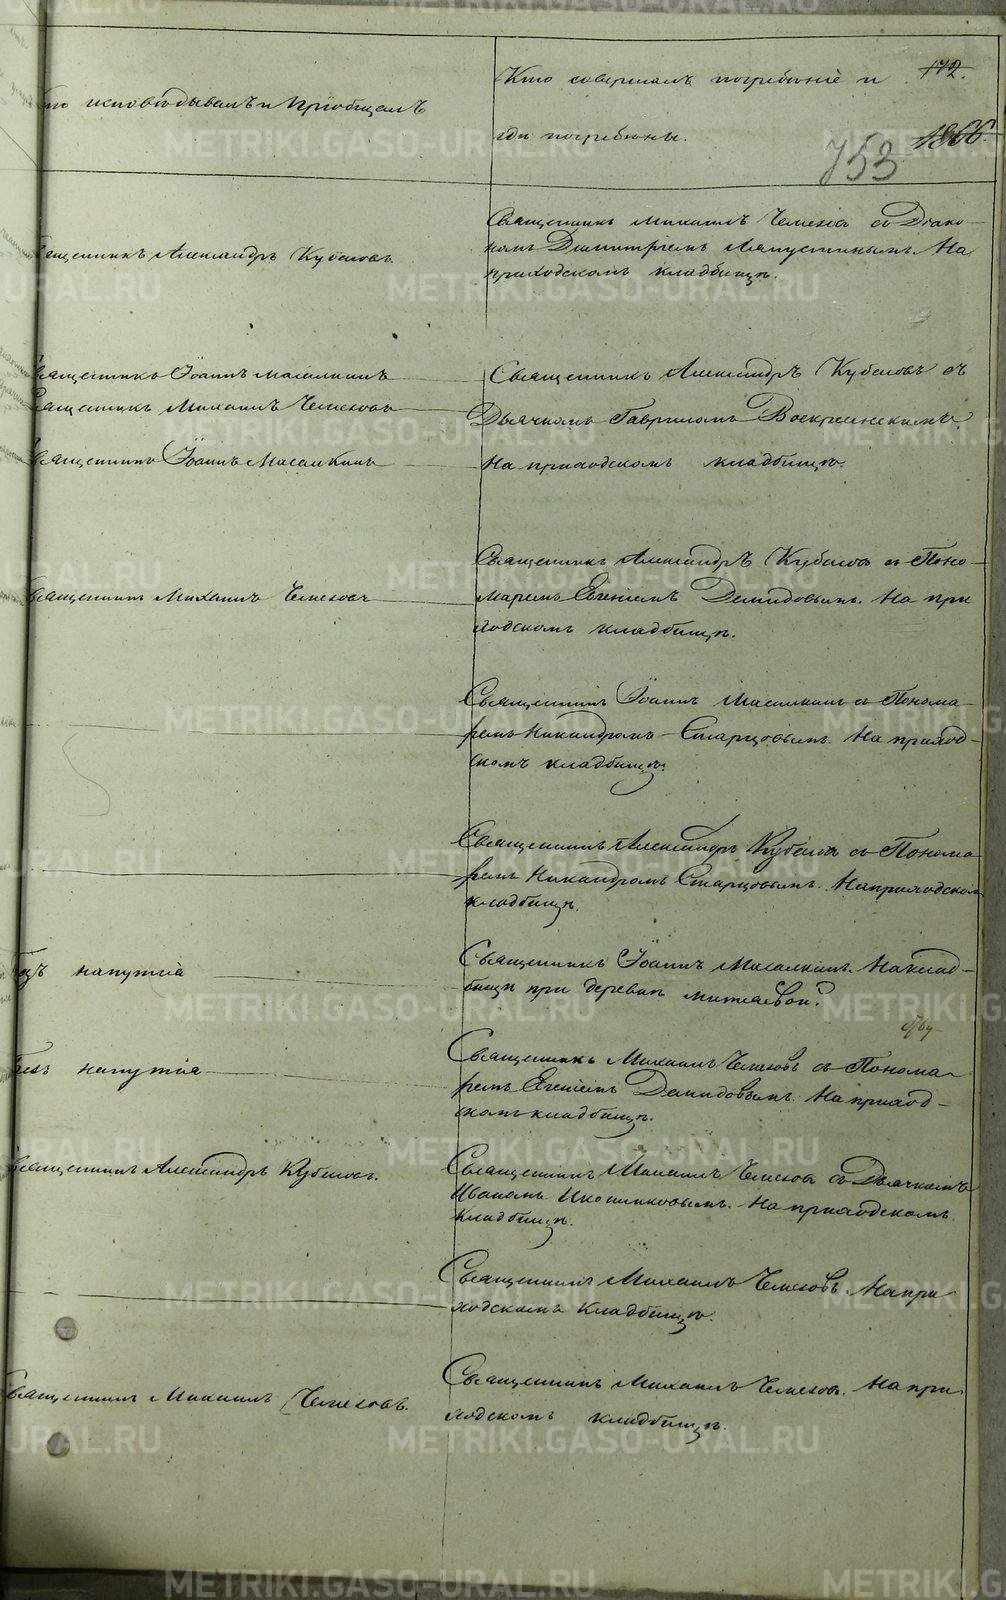 Кто исповѣдывалъ и пріобщалъ
Кто совершалъ погребеніе и
гдѣ погребены.
172.
1866.
753
Священникъ Александръ Кубасовъ.
Священникъ Михаилъ Чемезовъ съ Діако-
номъ Димитріемъ Ляпустинымъ. На
приходскомъ кладбищѣ.
Священникъ Іоаннъ Масалкинъ
Священникъ Михаилъ Чемезовъ
Священникъ Іоаннъ Масалкинъ
Священникъ Александръ Кубасовъ съ
Дьячкомъ Гавриломъ Воскресенскимъ.
На приходскомъ кладбищѣ.
Священникъ Михаилъ Чемезовъ
Священникъ Александръ Кубасовъ съ Поно-
маремъ Евгеніемъ Демидовымъ. На при
ходскомъ кладбищѣ.
Священникъ Іоаннъ Масалкинъ съ Понома-
ремъ Никандромъ Старцовымъ. На приход-
скомъ кладбищѣ.
Священникъ Александръ Кубасовъ съ Понома
ремъ Никандромъ Старцовымъ. На приходском
кладбищѣ.
Безъ напутія
Священникъ Іоаннъ Масалкинъ. На клад-
бищѣ при деревнѣ
Безъ напутія
Священникъ Михаилъ Чемезовъ съ Понома-
ремъ Евгеніемъ Демидовымъ. На приход-
скомъ кладбищѣ.
Священникъ Александръ Кубасовъ.
Священникъ Михаилъ Чемезовъ съ Дьячкомъ
Иваномъ Иконниковымъ. На приходскомъ
кладбищѣ.
Священникъ Михаилъ Чемезовъ. На при
ходскомъ кладбищѣ.
Священникъ Михаилъ Чемезовъ.
Священникъ Михаилъ Чемезовъ. На при
ходскомъ кладбищѣ.
METRIKI.GASO-URAL.RU